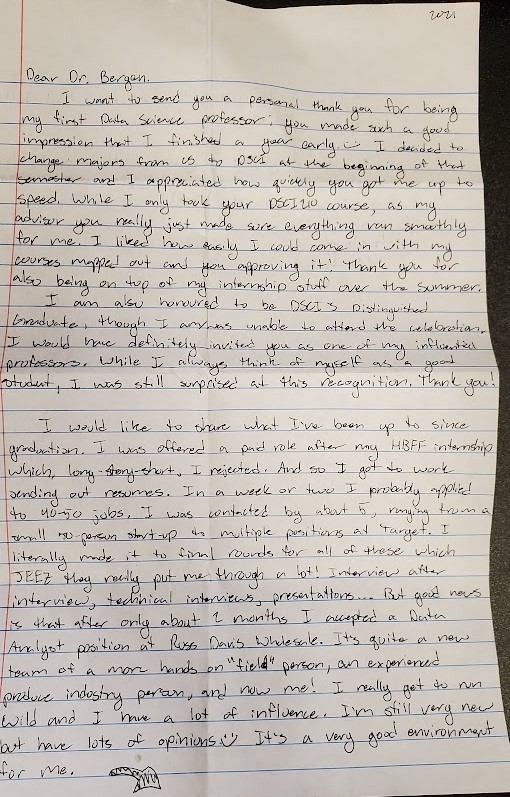 2021
Dear Dr. Bergen.
I want to send you a personal thank you for being
my first Data Science professor; you made such a good
impression that I finished a year early. I decided to
change majors from CS to DSCI at the beginning of that
semester and I appreciated how quickly you got me up to
speed. While I only took your DSCI 210 course, as my
advisor you really just made sure everything ran smoothly
for me. I liked how easily I could come in with my
courses mapped out and you approving it! Thank you for
also being on top of my internship stuff over the summer.
I am also honoured to be DSCI's Distinguished
Graduate, though I was unable to attend the celebration.
I would have definitely invited you as one of my influential
professors. While I always think of myself as a good
student, I was still surprised at this recognition. Thank you!
I would like to share what I've been up to since
graduation. I was offered a paid role after my HBFF internship
which, long-story-short, I rejected. And so I got to work
sending out resumes. In a week or two I probably applied
to 40-50 jobs. I was contacted by about 5, ranging from a
small person start-up to multiple positions at Target. I
literally made it to final rounds for all of these which
JEEZ they really put me through a lot! Interview after
interview, technical interviews, presentations... But good news
is that after only about 2 months I accepted a Data
Analyst position at Russ Davis Wholesale. It's quite a new
team of a more hands on "field" person, an experienced
produce industry person, and now me! I really get to run
wild and I have a lot of influence. I'm still very new
but have lots of opinions. It's a very good environment
for me.